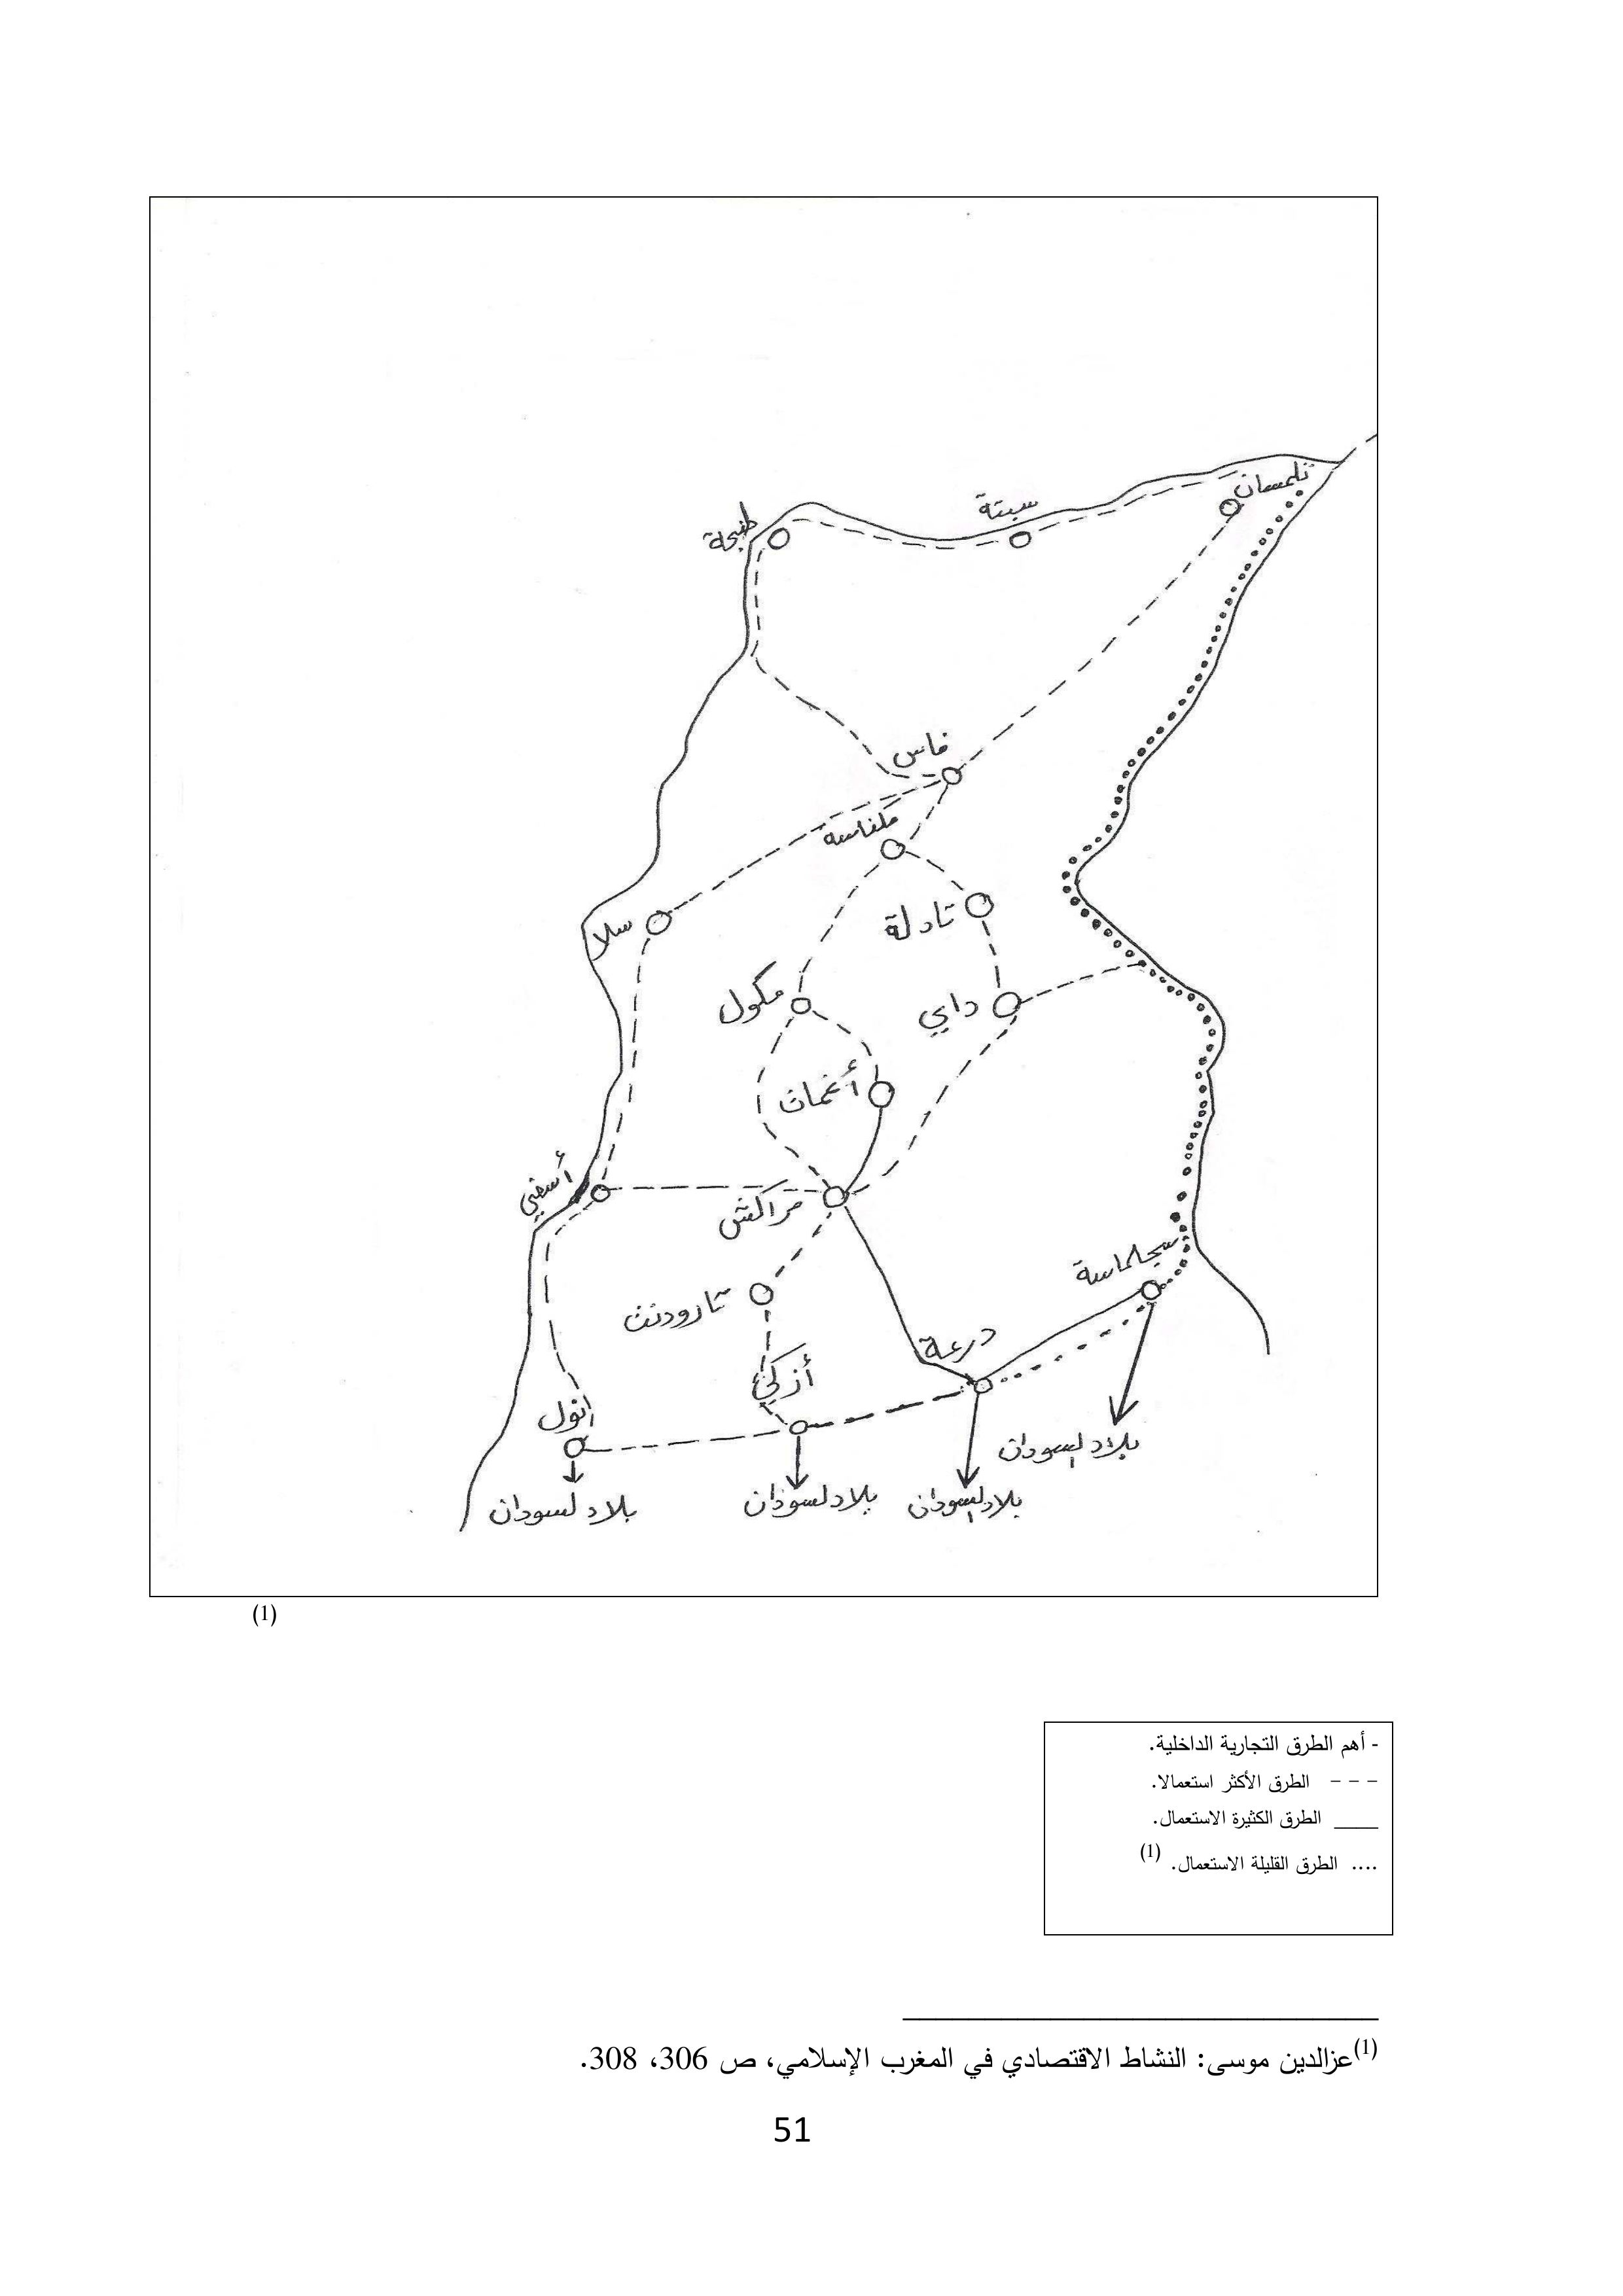 تلمسان
سبتة
طنجة
فاس
مكناسة
تادلة
سلا
داي
مكول
أغمات
أسفي
مراكش
سجلماسة
تارودنت
درعة
أزكي
انول
بلاد السودان
بلاد السودان
بلاد لسودان
بلاد لسودان
(1)
- أهم الطرق التجارية الداخلية.
- - - الطرق الأكثر استعمالا.
____ الطرق الكثيرة الاستعمال.
.... الطرق القليلة الاستعمال. (1)
(1)عزالدين موسى: النشاط الاقتصادي في المغرب الإسلامي، ص 306، 308.
51